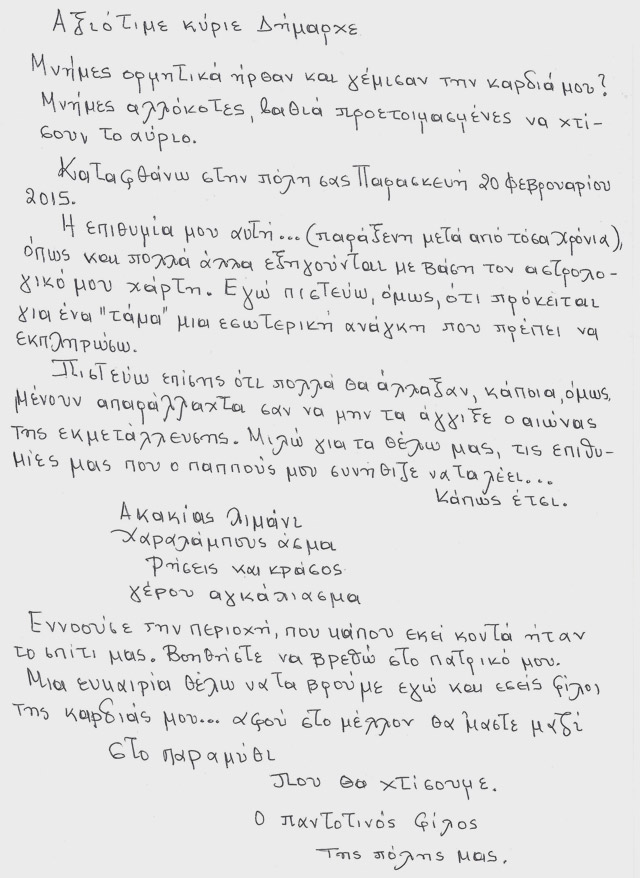 Αξιότιμε κύριε Δήμαρχε
Μνήμες ορμητικά ήρθαν και γέμισαν την καρδιά μου?
Μνήμες αλλόκοτες, βαθιά προετοιμασμένες να χτί-
σουν το αύριο.
Καταφθάνω στην πόλη σας Παρασκευή 20 Φεβρουαρίου
2015.
Η επιθυμία μου αυτή... (παράξενη μετά από τόσα χρόνια),
όπως και πολλά άλλα εξηγούνται με βάση τον αστρολο-
γικό μου χάρτη. Εγώ πιστεύω, όμως, ότι πρόκειται
για ένα "τάμα" μια εσωτερική ανάγκη που πρέπει να
εκπληρώσω.
Πιστεύω επίσης ότι πολλά θα άλλαξαν, κάποια, όμως,
μένουν απαράλλαχτα σαν να μην τα άγγιξε ο αιώνας
της εκμετάλλευσης. Μιλώ για τα θέλω μας, τις επιθυ-
μίες μας που ο παππούς μου συνήθιζε να τα λέει...
κάπως έτσι.
Ακακίας λιμάνι
Χαραλάμπους άσμα
Ρήσεις και κράσος
γέρου αγκάλιασμα
Εννοούσε την περιοχή, που κάπου εκεί κοντά ήταν
το σπίτι μας. Βοηθήστε να βρεθώ στο πατρικό μου.
Μια ευκαιρία θέλω να τα βρούμε εγώ και εσείς φίλοι
της καρδιάς μου... αφού στο μέλλον θα 'μαστε μαζί
στο παραμύθι
που θα χτίσουμε.
Ο παντοτινός φίλος
της πόλης μας.